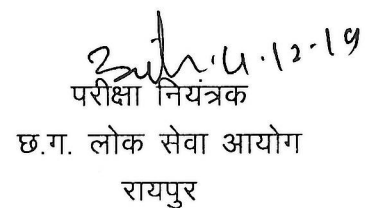 4.12.19
परीक्षा नियंत्रक
छ.ग. लोक सेवा आयोग
रायपुर